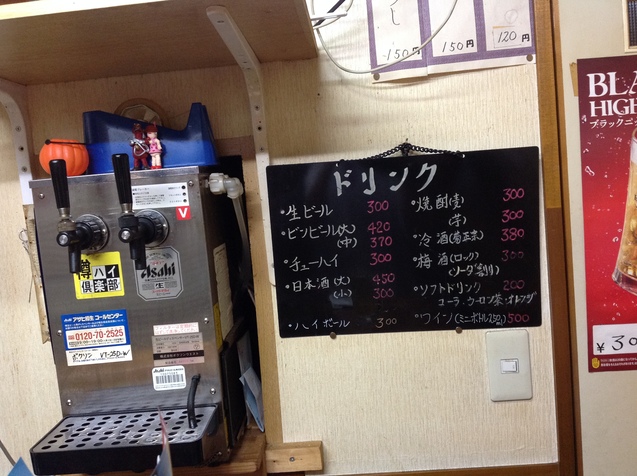 150円
150円
120円
ドリンク
・生ビール 300
・ビンビール(大) 420
(中) 370
・チューハイ 300
・日本酒(大) 450
(小) 300
・ハイボール 300
・焼酎(麦) 300
(芋) 300
・冷酒(菊正宗) 380
・梅酒(ロック) 300
(ソーダ割り)
・ソフトドリンク 200
コーラ・ウーロン茶・オレンジ
・ワイン(ミニボトル250) 500
樽ハイ
倶楽部
Asahi
生
V
アサヒ樽生コールセンター
0120-70-2525
ボクソン VT-25D-W
Asahi
BLA
HIGH
ブラックニ
¥30